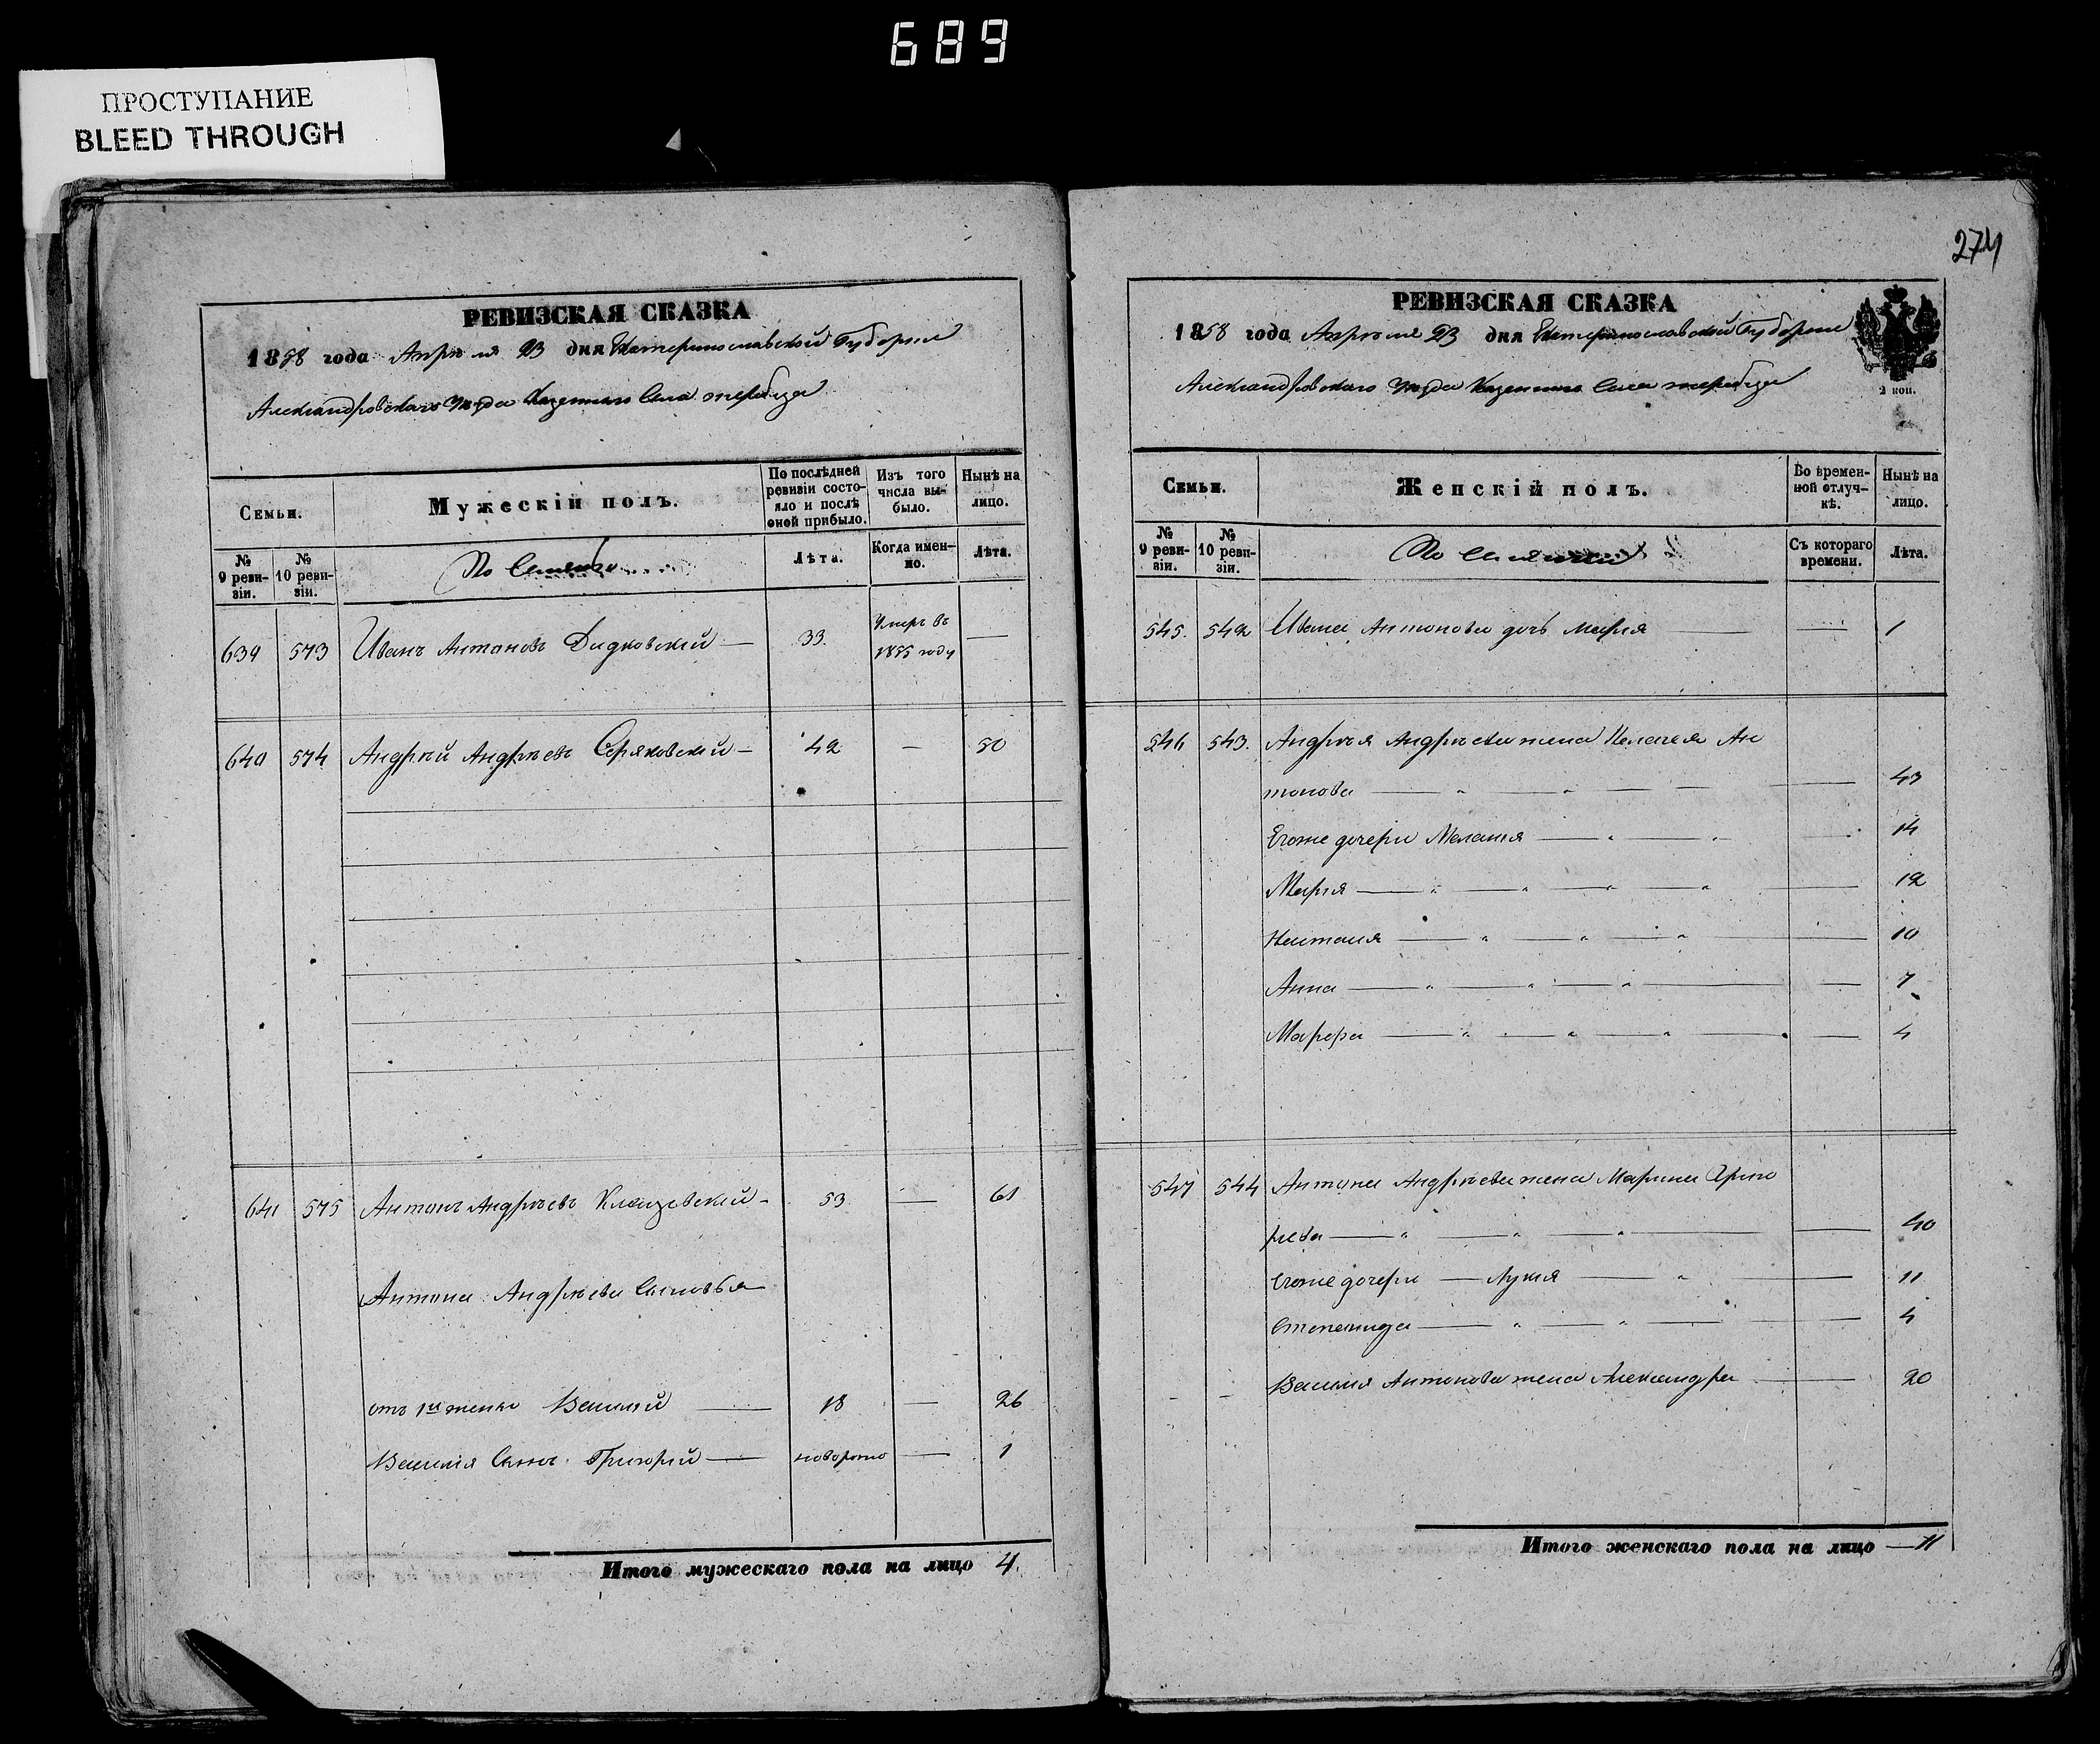 689
ПРОСТУПАНИЕ
BLEED THROUGH
274
РЕВИЗСКАЯ СКАЗКА
1858 года Апреля 23 дня Екатеринославской Губернии
Александровского Уезда Казенного Села
Семьи.
Мужескій полъ.
По послѣдней ревизіи состояло и послѣ оной прибыло.
Изъ того числа выбыло.
Нынѣ на лицо.
№ 9 ревизіи.
№ 10 ревизіи.
Лѣта.
Когда именно.
Лѣта.
639 573 Иванъ Антоновъ Дидковскій — 33. Умеръ въ 1855 году —
640 574 Андрей Андреевъ Серяковскій — 42 — 50
641 575 Антонъ Андреевъ — 53 — 61
Антона Андреева Сыновья
отъ 1й жены Василій — 18 — 26
Василія Сынъ Григорій — новорожд — 1
Итого мужескаго пола на лицо 4.
РЕВИЗСКАЯ СКАЗКА
1858 года Апреля 23 дня Екатеринославской Губернии
Александровского Уезда Казенного Села
2 коп.
Семьи.
Женскій полъ.
Во временной отлучкѣ.
Нынѣ на лицо.
№ 9 ревизіи.
№ 10 ревизіи.
Съ котораго времени.
Лѣта.
545. 542 Ивана Антонова дочь Марія — — 1
546 543. Андрея Андреева жена Пелагея Ан
тонова — " — " — — — 43
Егоже дочери Меланія — " — " — 14
Марія — " — " — " — " — 12
Наталія — " — " — " — 10
Анна — " — " — " — 7
Марфа — " — " — " — 4
547 544 Антона Андреева жена Марина Григо
рьева — " — " — " — 40
Егоже дочери — Лукія — " — 11
Степанида — " — " — — 4
Василія Антонова жена Александра — 20
Итого женскаго пола на лицо — 11